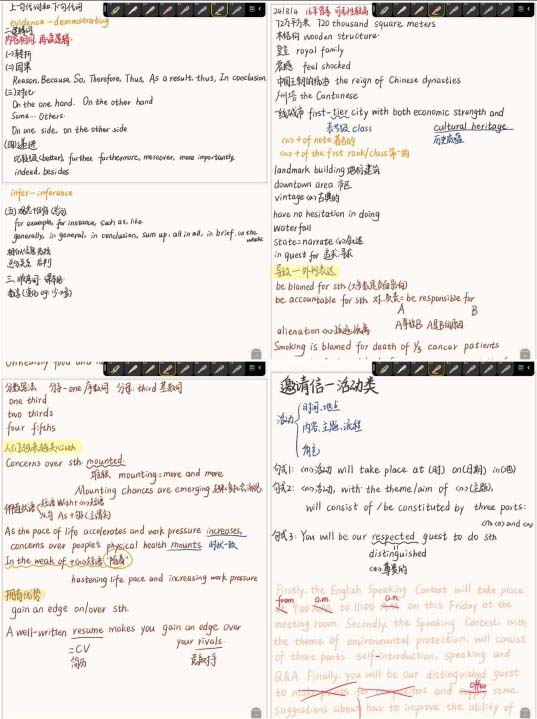 上句代词和下句代词
evidence - demonstrating
二.逻辑词
(一)转折
(二)因果
Reason, Because, So, Therefore, Thus, As a result, thus, In conclusion
(三)对比
On the one hand. On the other hand
Some... Others.
On one side, on the other side
(四)递进
比较级(better), further furthermore, moreover, more importantly,
indeed, besides
infer - inference
for example, for instance, such as, like
generally, in general, in conclusion, sum up, all in all, in brief, on the whole
72万平方米 720 thousand square meters
木结构 wooden structure
皇室 royal family
震撼 feel shocked
中国王朝的统治 the reign of Chinese dynasties
广州塔 the Cantonese
一线城市 first-tier city with both economic strength and
cultural heritage
表等级 class
<n> + of note 著名的
<n> + of the first rank/class 第一的
landmark building 地标建筑
downtown area 市区
vintage <n> 古典的
have no hesitation in doing
waterfall
state = narrate <v> 叙述
in quest for 追求, 寻求
导致一外刊表达
be blamed for sth
be accountable for sth 对..负责 = be responsible for
A B
alienation
A导致B
Smoking is blamed for death of 1/3 cancer patients
分数写法 分子-one 分母: third
one third
two thirds
four fifths
Concerns over sth mounted.
堆积 mounting = more and more
Mounting chances are emerging
As the pace of life accelerates and work pressure increases,
concerns over people's physical health mounts
In the weak of +<n>短语 "随着"
hastening life pace and increasing work pressure
拥有优势
gain an edge on/over sth.
A well-written resume makes you gain an edge over
your rivals.
=CV
简历
竞争对手
邀请信一活动类
活动
时间、地点
内容、主题、流程
角色
句式1: <n>活动 will take place at (时) on(日期) in(地)
句式2: <n>活动, with the theme/aim of <n>(主题),
will consist of / be constituted by three parts:
句式3: You will be our respected guest to do sth
distinguished
<a> 尊贵的
Firstly, the English Speaking Contest will take place
from a.m. a.m.
to 11:00 on this Friday at the
meeting room. Secondly, the Speaking Contest, with
the theme of environmental protection, will consist
of three parts self-introduction, speaking and
Q&A. Finally, you will be our distinguished guest
offer
to make points for competitors and some
suggestions about how to improve the ability of